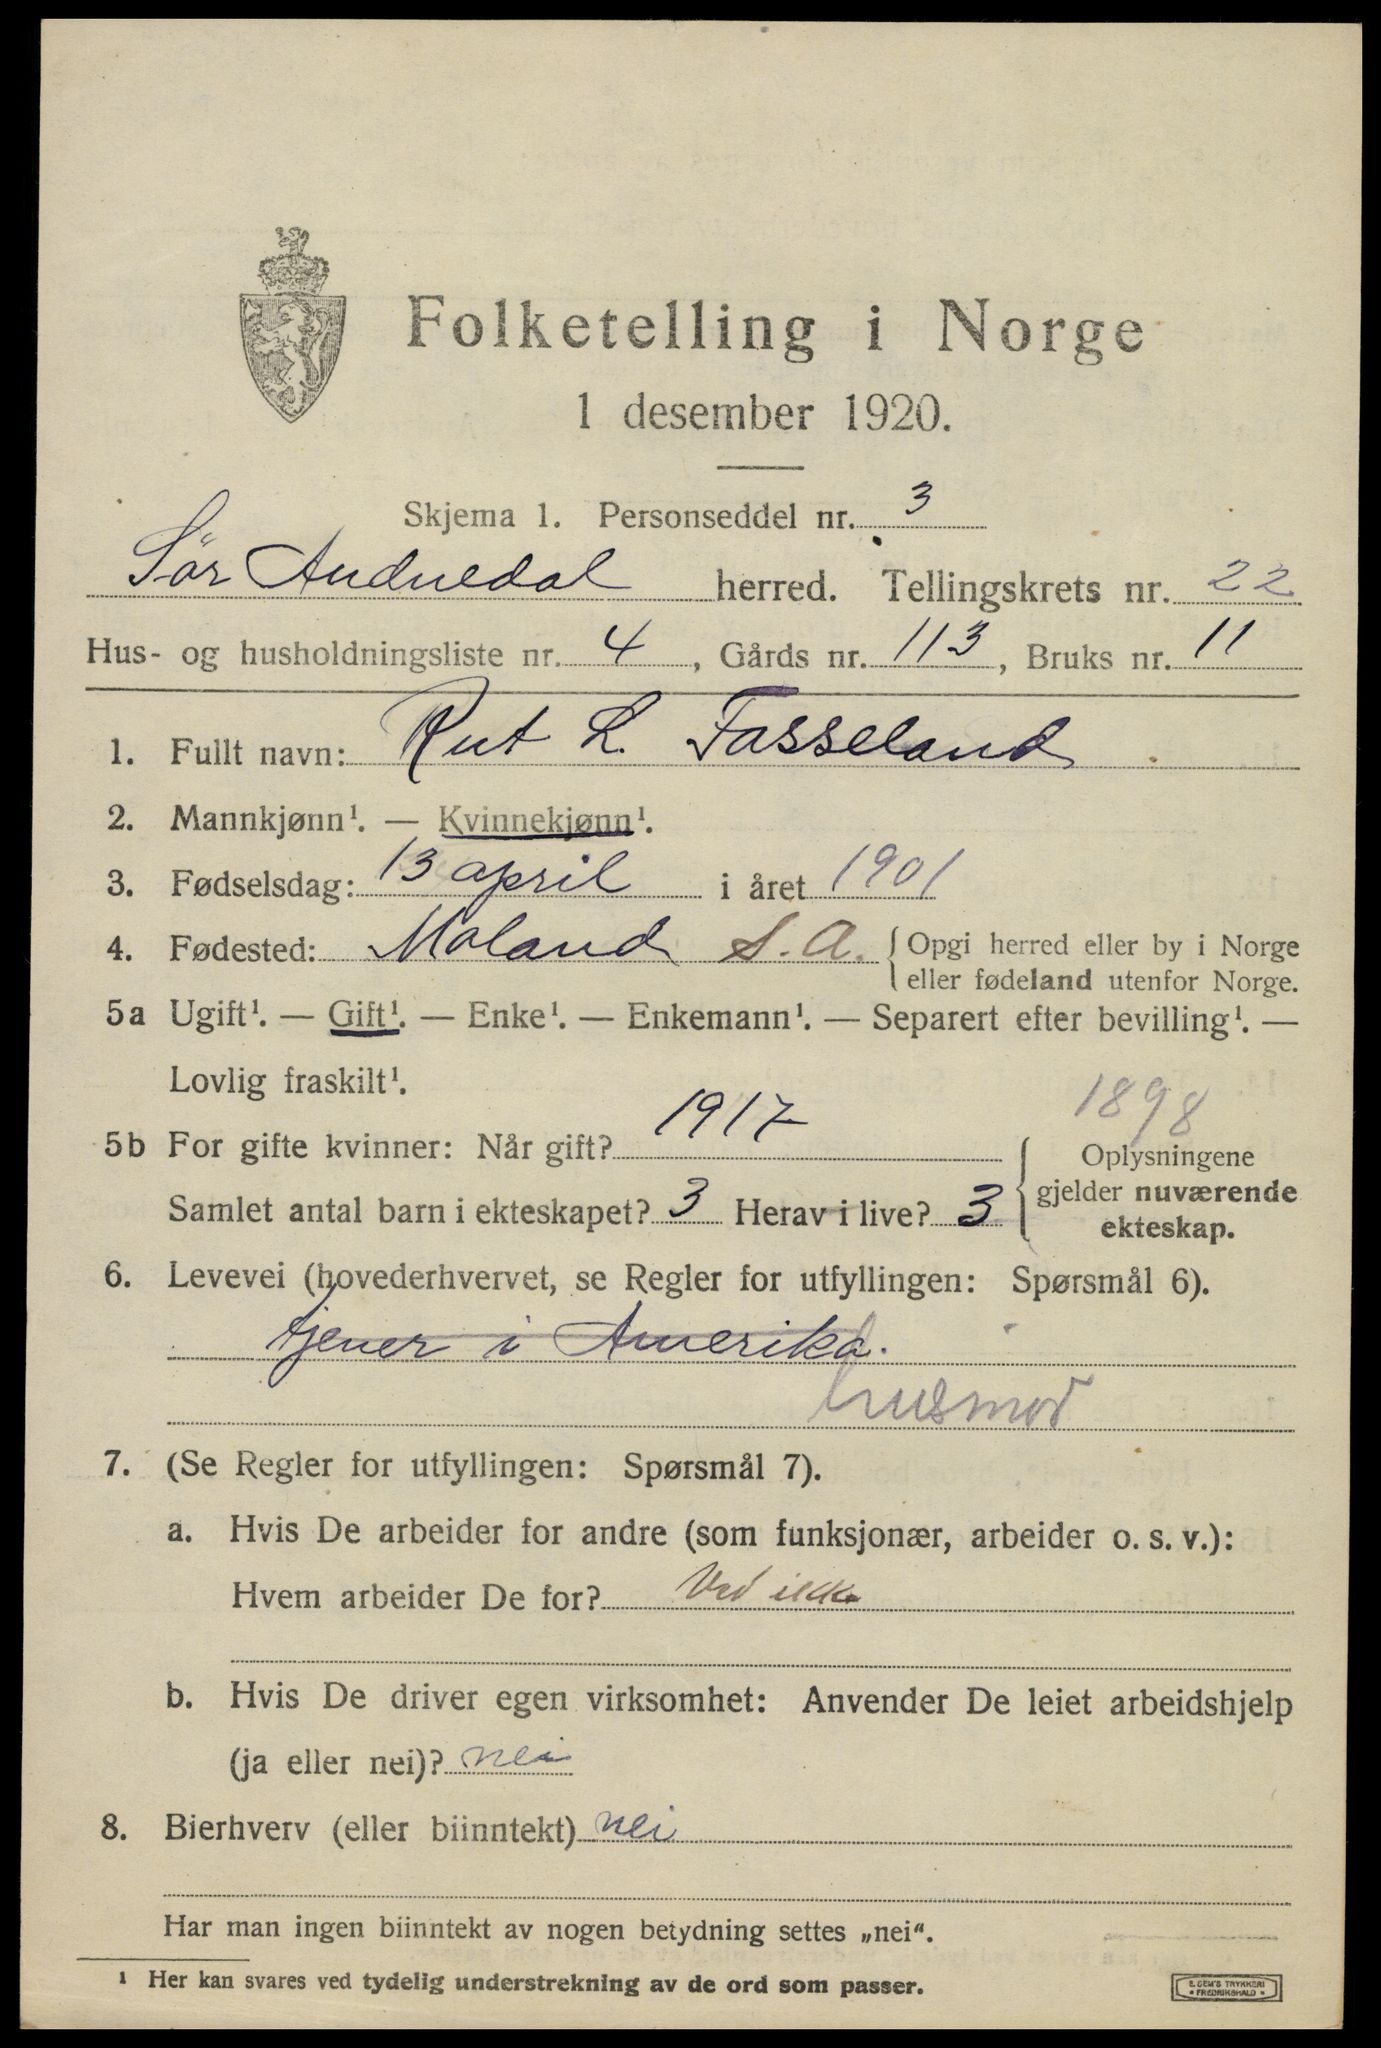 Folketelling i Norge
1 desember 1920.
Skjema 1. Personseddel nr. 3
Sör Audnedal herred. Tellingskrets nr. 22
Hus- og husholdningsliste nr. 4, Gårds nr. 113, Bruks nr. 11
1. Fullt navn: Rut L. Fasseland
2. Mannkjønn¹. — Kvinnekjønn¹.
3. Fødselsdag: 13 april i året 1901
4. Fødested: Moland S. A. { Opgi herred eller by i Norge
eller fødeland utenfor Norge.
5a Ugift¹. — Gift¹. — Enke¹. — Enkemann¹. — Separert efter bevilling¹. —
Lovlig fraskilt¹.
1898
5b For gifte kvinner: Når gift? 1917
Samlet antal barn i ekteskapet? 3 Herav i live? 3
Oplysningene
gjelder nuværende
ekteskap.
6. Levevei (hovederhvervet, se Regler for utfyllingen: Spørsmål 6).
tjener i Amerika.
husmor
7. (Se Regler for utfyllingen: Spørsmål 7).
a. Hvis De arbeider for andre (som funksjonær, arbeider o. s. v.):
Hvem arbeider De for? Ved ikke
b. Hvis De driver egen virksomhet: Anvender De leiet arbeidshjelp
(ja eller nei)? nei
8. Bierhverv (eller biinntekt) nei
Har man ingen biinntekt av nogen betydning settes „nei“.
¹ Her kan svares ved tydelig understrekning av de ord som passer.
E. SEM'S TRYKKERI
• FREDRIKSHALD •